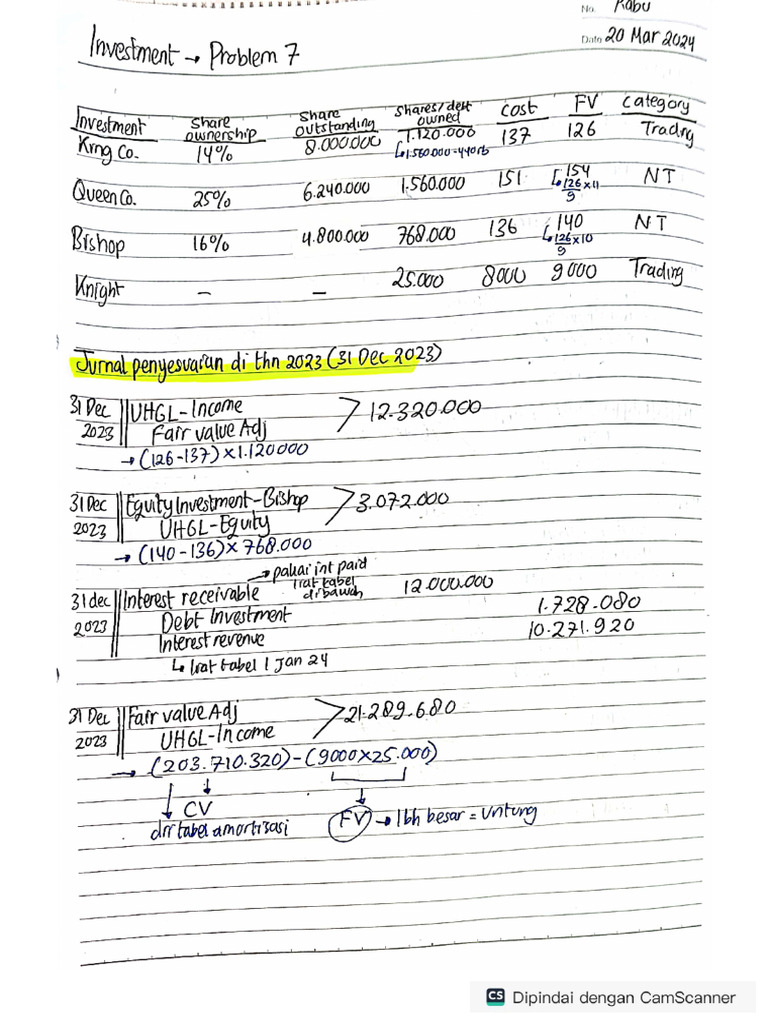 No. Rabu
Date 20 Mar 2024
Investment → Problem 7
Investment Share ownership Share outstanding Shares/debt owned Cost FV Category
King Co. 14% 8.000.000 1.120.000 137 126 Trading
↳1.560.000-440rb
Queen Co. 25% 6.240.000 1.560.000 151 154 NT
↳126 x 11
9
Bishop 16% 4.800.000 768.000 136 140 NT
↳126 x 10
9
Knight – – 25.000 8000 9000 Trading
Jurnal penyesuaian di thn 2023 (31 Dec 2023)
31 Dec UHGL-Income > 12.320.000
2023 Fair value Adj
→ (126-137) x 1.120000
31 Dec Equity Investment-Bishop > 3.072.000
2023 UHGL-Equity
→ (140-136) x 768.000
→ pakai int paid
liat tabel
dibawah
31 dec Interest receivable 12.000.000
2023 Debt Investment 1.728.080
Interest revenue 10.271.920
↳ liat tabel 1 Jan 24
31 Dec Fair value Adj > 21.289.680
2023 UHGL-Income
→ (203.710.320)-(9000x25.000)
↓ CV
dri tabel amortisasi
FV → lbh besar = untung
CS Dipindai dengan CamScanner